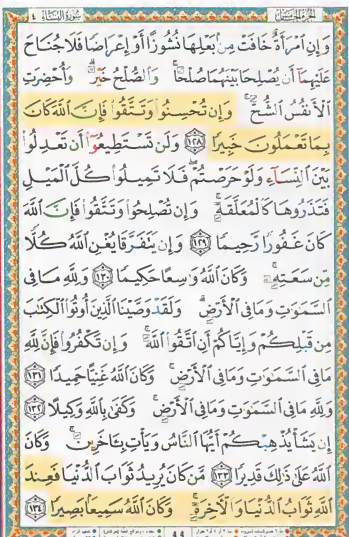 الجزء الخامس سورة النساء ٤
وَإِنِ ٱمْرَأَةٌ خَافَتْ مِنۢ بَعْلِهَا نُشُوزًا أَوْ إِعْرَاضًا فَلَا جُنَاحَ
عَلَيْهِمَآ أَن يُصْلِحَا بَيْنَهُمَا صُلْحًا ۚ وَٱلصُّلْحُ خَيْرٌ ۗ وَأُحْضِرَتِ
ٱلْأَنفُسُ ٱلشُّحَّ ۚ وَإِن تُحْسِنُوا۟ وَتَتَّقُوا۟ فَإِنَّ ٱللَّهَ كَانَ
بِمَا تَعْمَلُونَ خَبِيرًا ١٢٨ وَلَن تَسْتَطِيعُوٓا۟ أَن تَعْدِلُوا۟
بَيْنَ ٱلنِّسَآءِ وَلَوْ حَرَصْتُمْ ۖ فَلَا تَمِيلُوا۟ كُلَّ ٱلْمَيْلِ
فَتَذَرُوهَا كَٱلْمُعَلَّقَةِ ۚ وَإِن تُصْلِحُوا۟ وَتَتَّقُوا۟ فَإِنَّ ٱللَّهَ
كَانَ غَفُورًا رَّحِيمًا ١٢٩ وَإِن يَتَفَرَّقَا يُغْنِ ٱللَّهُ كُلًّا
مِّن سَعَتِهِۦ ۚ وَكَانَ ٱللَّهُ وَٰسِعًا حَكِيمًا ١٣٠ وَلِلَّهِ مَا فِى
ٱلسَّمَٰوَٰتِ وَمَا فِى ٱلْأَرْضِ ۗ وَلَقَدْ وَصَّيْنَا ٱلَّذِينَ أُوتُوا۟ ٱلْكِتَٰبَ
مِن قَبْلِكُمْ وَإِيَّاكُمْ أَنِ ٱتَّقُوا۟ ٱللَّهَ ۚ وَإِن تَكْفُرُوا۟ فَإِنَّ لِلَّهِ
مَا فِى ٱلسَّمَٰوَٰتِ وَمَا فِى ٱلْأَرْضِ ۚ وَكَانَ ٱللَّهُ غَنِيًّا حَمِيدًا ١٣١
وَلِلَّهِ مَا فِى ٱلسَّمَٰوَٰتِ وَمَا فِى ٱلْأَرْضِ ۚ وَكَفَىٰ بِٱللَّهِ وَكِيلًا ١٣٢
إِن يَشَأْ يُذْهِبْكُمْ أَيُّهَا ٱلنَّاسُ وَيَأْتِ بِـَٔاخَرِينَ ۚ وَكَانَ
ٱللَّهُ عَلَىٰ ذَٰلِكَ قَدِيرًا ١٣٣ مَّن كَانَ يُرِيدُ ثَوَابَ ٱلدُّنْيَا فَعِندَ
ٱللَّهِ ثَوَابُ ٱلدُّنْيَا وَٱلْءَاخِرَةِ ۚ وَكَانَ ٱللَّهُ سَمِيعًۢا بَصِيرًا ١٣٤
٩٩